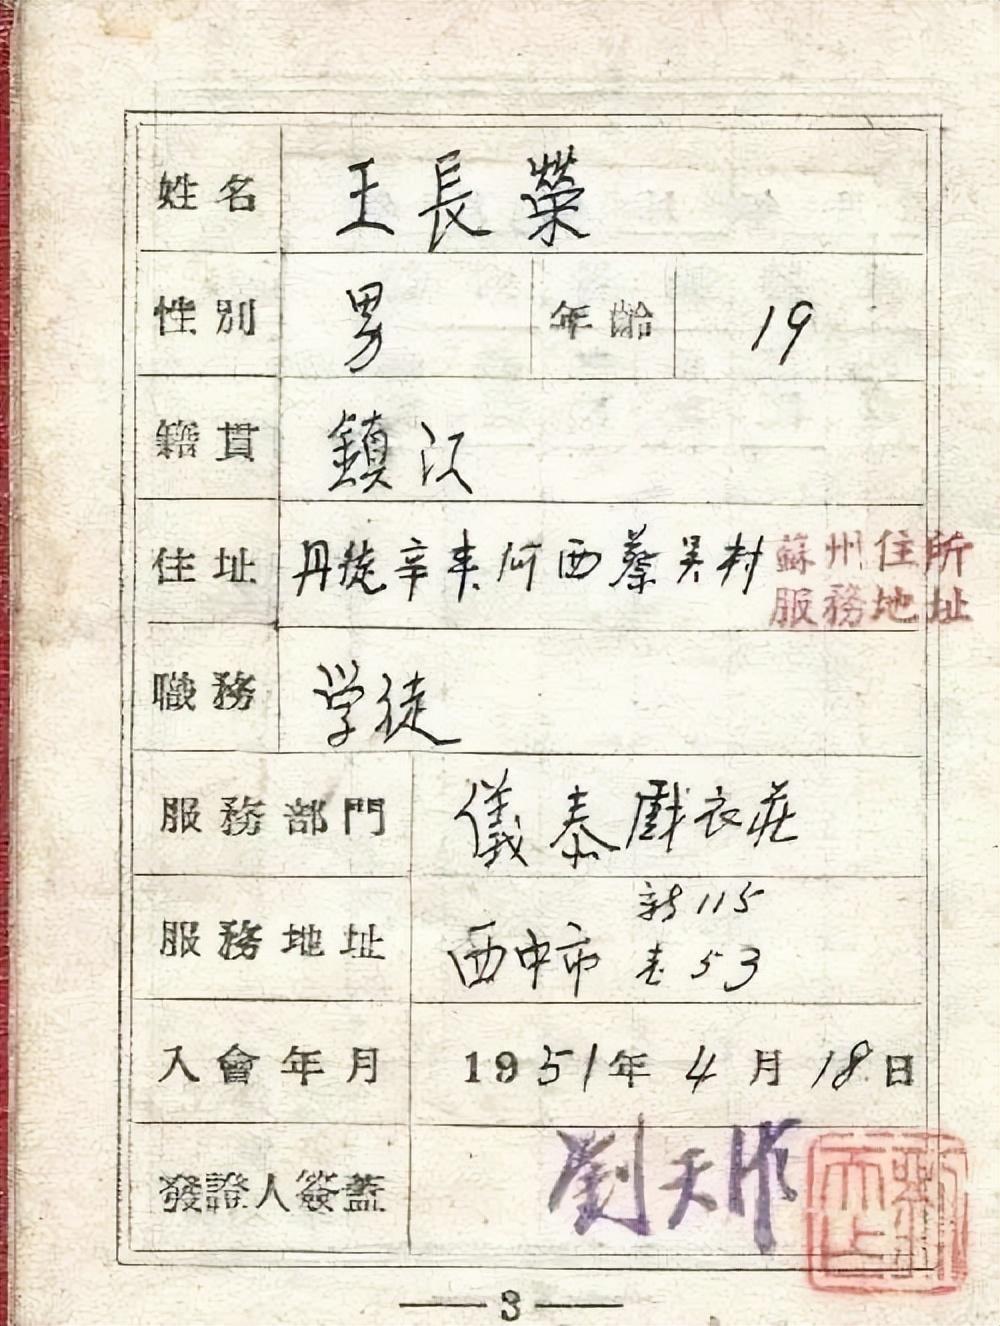 姓名 王長榮
性別 男 年齡 19
籍貫 鎮江
住址 丹徒辛丰河西蔡吴村
蘇州住所
服務地址
職務 学徒
服務部門 儀泰戲衣莊
新115
服務地址 西中市 老53
入會年月 1951年4月18日
發證人簽蓋 劉天
3